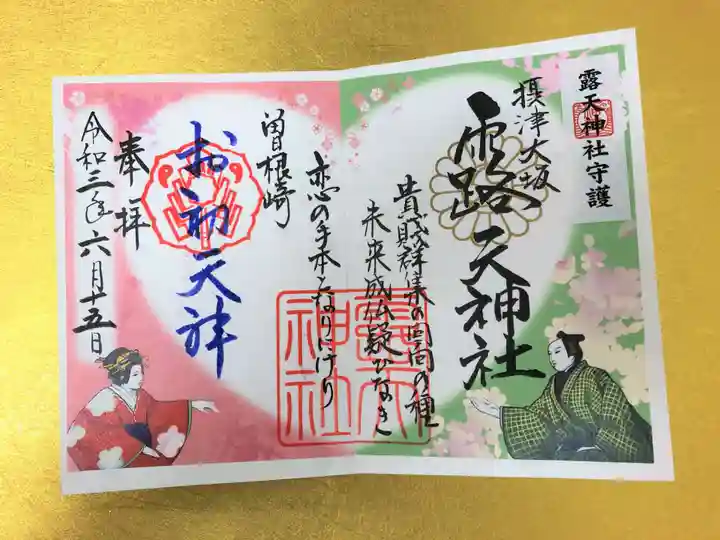 露天神社守護
摂津大坂
露天神社
貴賤群集の回向の種
未来成仏疑ひなき
恋の手本となりにけり
曽根崎
お初天神
奉拝
令和三年六月十五日
露天
神社